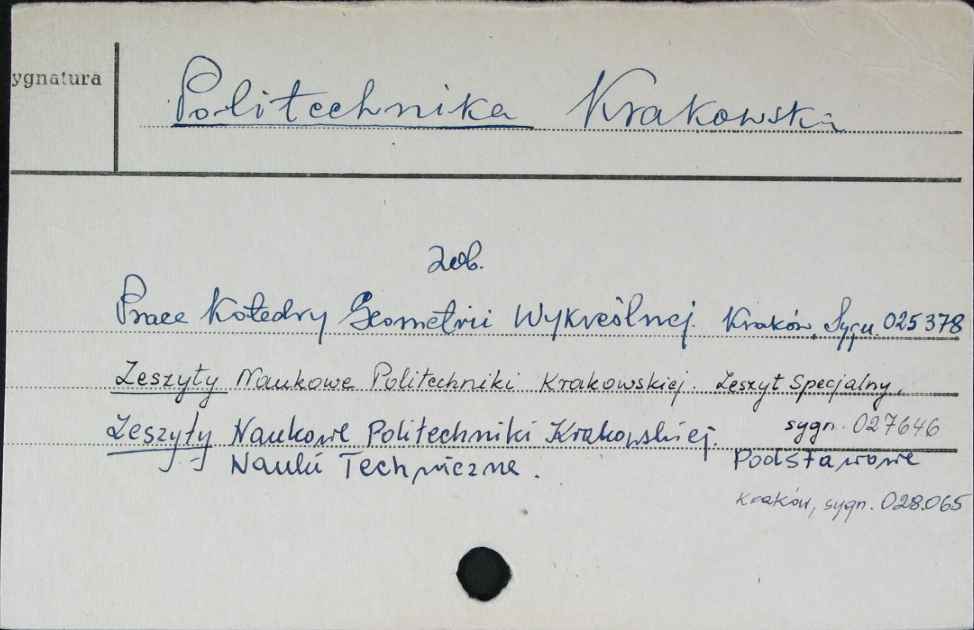 ygnatura
Politechnika Krakowska
zob.
Prace Katedry Geometrii Wykreślnej. Kraków, Sygn. 025378
Zeszyty Naukowe Politechniki Krakowskiej. Zeszyt Specjalny,
sygn. 027646
Zeszyty Naukowe Politechniki Krakowskiej.
Podstawowe
Nauki Techniczne.
Kraków, sygn. 028.065